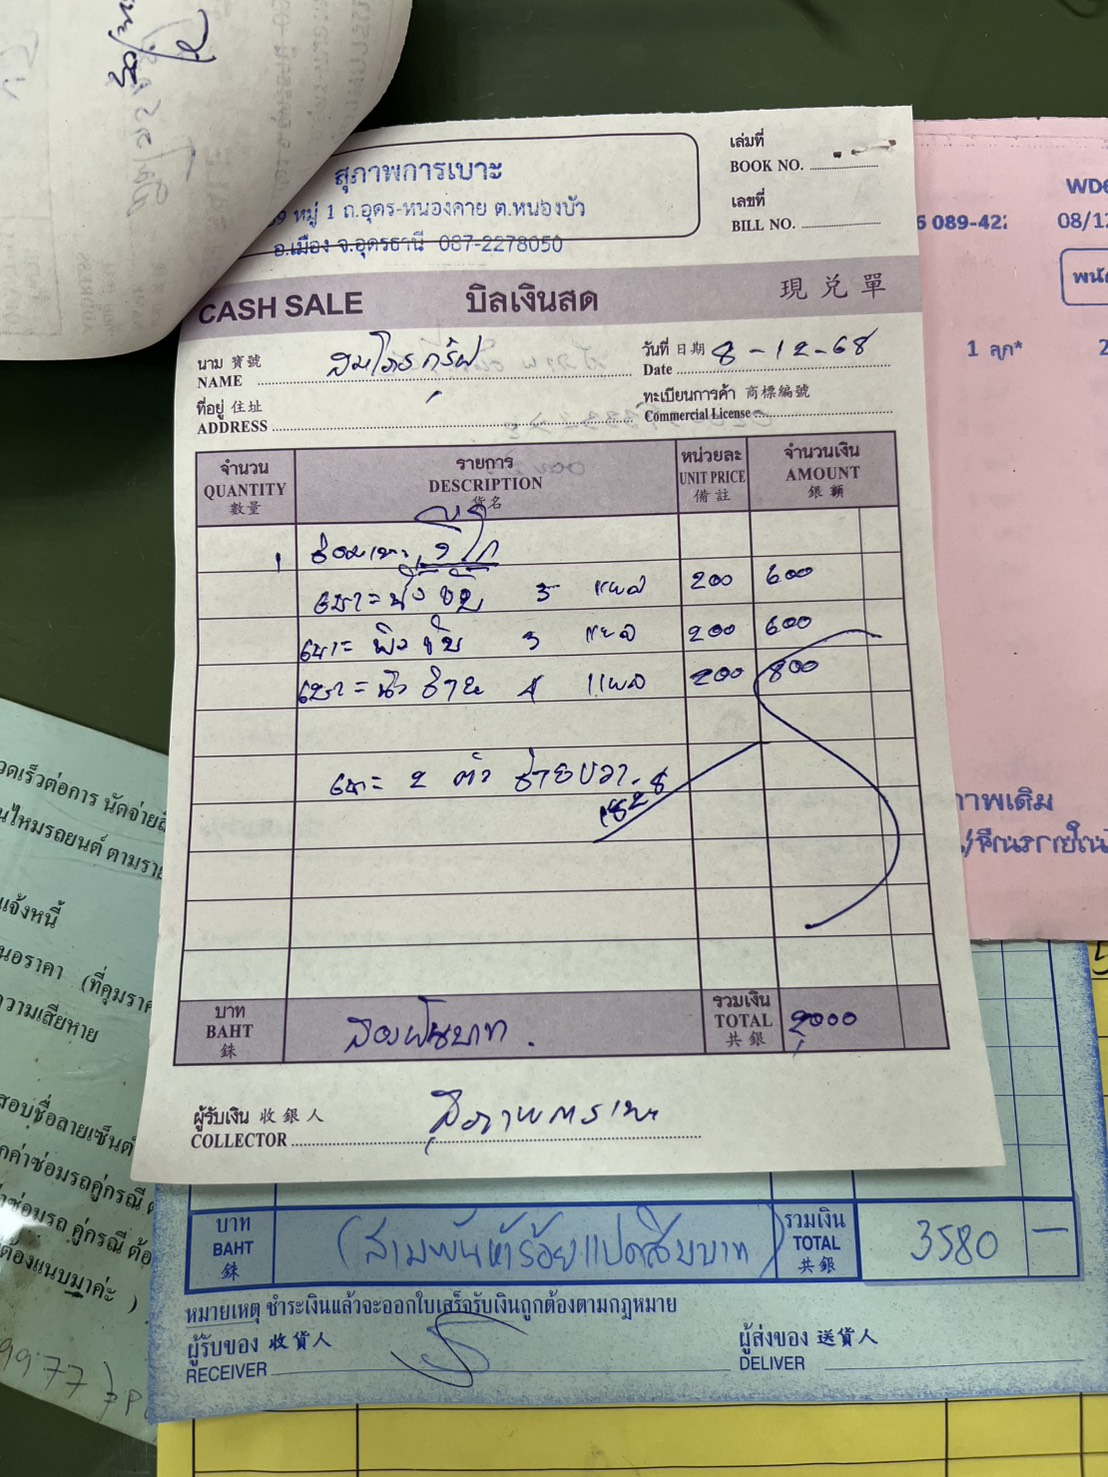 สุภาพการเบาะ
หมู่ 1 ถ.อุดร-หนองคาย ต.หนองบัว
อ.เมือง จ.อุดรธานี 087-2278050
เล่มที่
BOOK NO.
เลขที่
BILL NO.
CASH SALE บิลเงินสด 現兌單
นาม 寶號
NAME
วันที่ 日期 8-12-68
Date
ที่อยู่ 住址
ADDRESS
ทะเบียนการค้า 商標編號
Commercial License
จำนวน รายการ หน่วยละ จำนวนเงิน
QUANTITY DESCRIPTION UNIT PRICE AMOUNT
數量 貨名 備註 銀額
1 ซ่อมเบาะ
เบาะ 3 แผล 200 600
เบาะ พิง 3 แผล 200 600
เบาะ 4 แผล 200 800
เบาะ 2 ตัว ซ้ายขวา
บาท
BAHT
銖
สองพันบาท
รวมเงิน
TOTAL
共銀
2000
ผู้รับเงิน 收銀人
COLLECTOR
สุภาพการเบาะ
WD6
089-422
08/12
1 ลูก*
าพเดิม
วดเร็วต่อการ นัดจ่าย
นไหมรถยนต์ ตามราย
แจ้งหนี้
นอราคา (ที่คุมราค
ความเสียหาย
สอบชื่อลายเซ็นต์
กค่าซ่อมรถคู่กรณี ต
าซ่อมรถ คู่กรณี ต้อ
ต้องแนบมาค่ะ )
9977
บาท
BAHT
銖
(สามพันห้าร้อยแปดสิบบาท)
รวมเงิน
TOTAL
共銀
3580 —
หมายเหตุ ชำระเงินแล้วจะออกใบเสร็จรับเงินถูกต้องตามกฎหมาย
ผู้รับของ 收貨人
RECEIVER
ผู้ส่งของ 送貨人
DELIVER